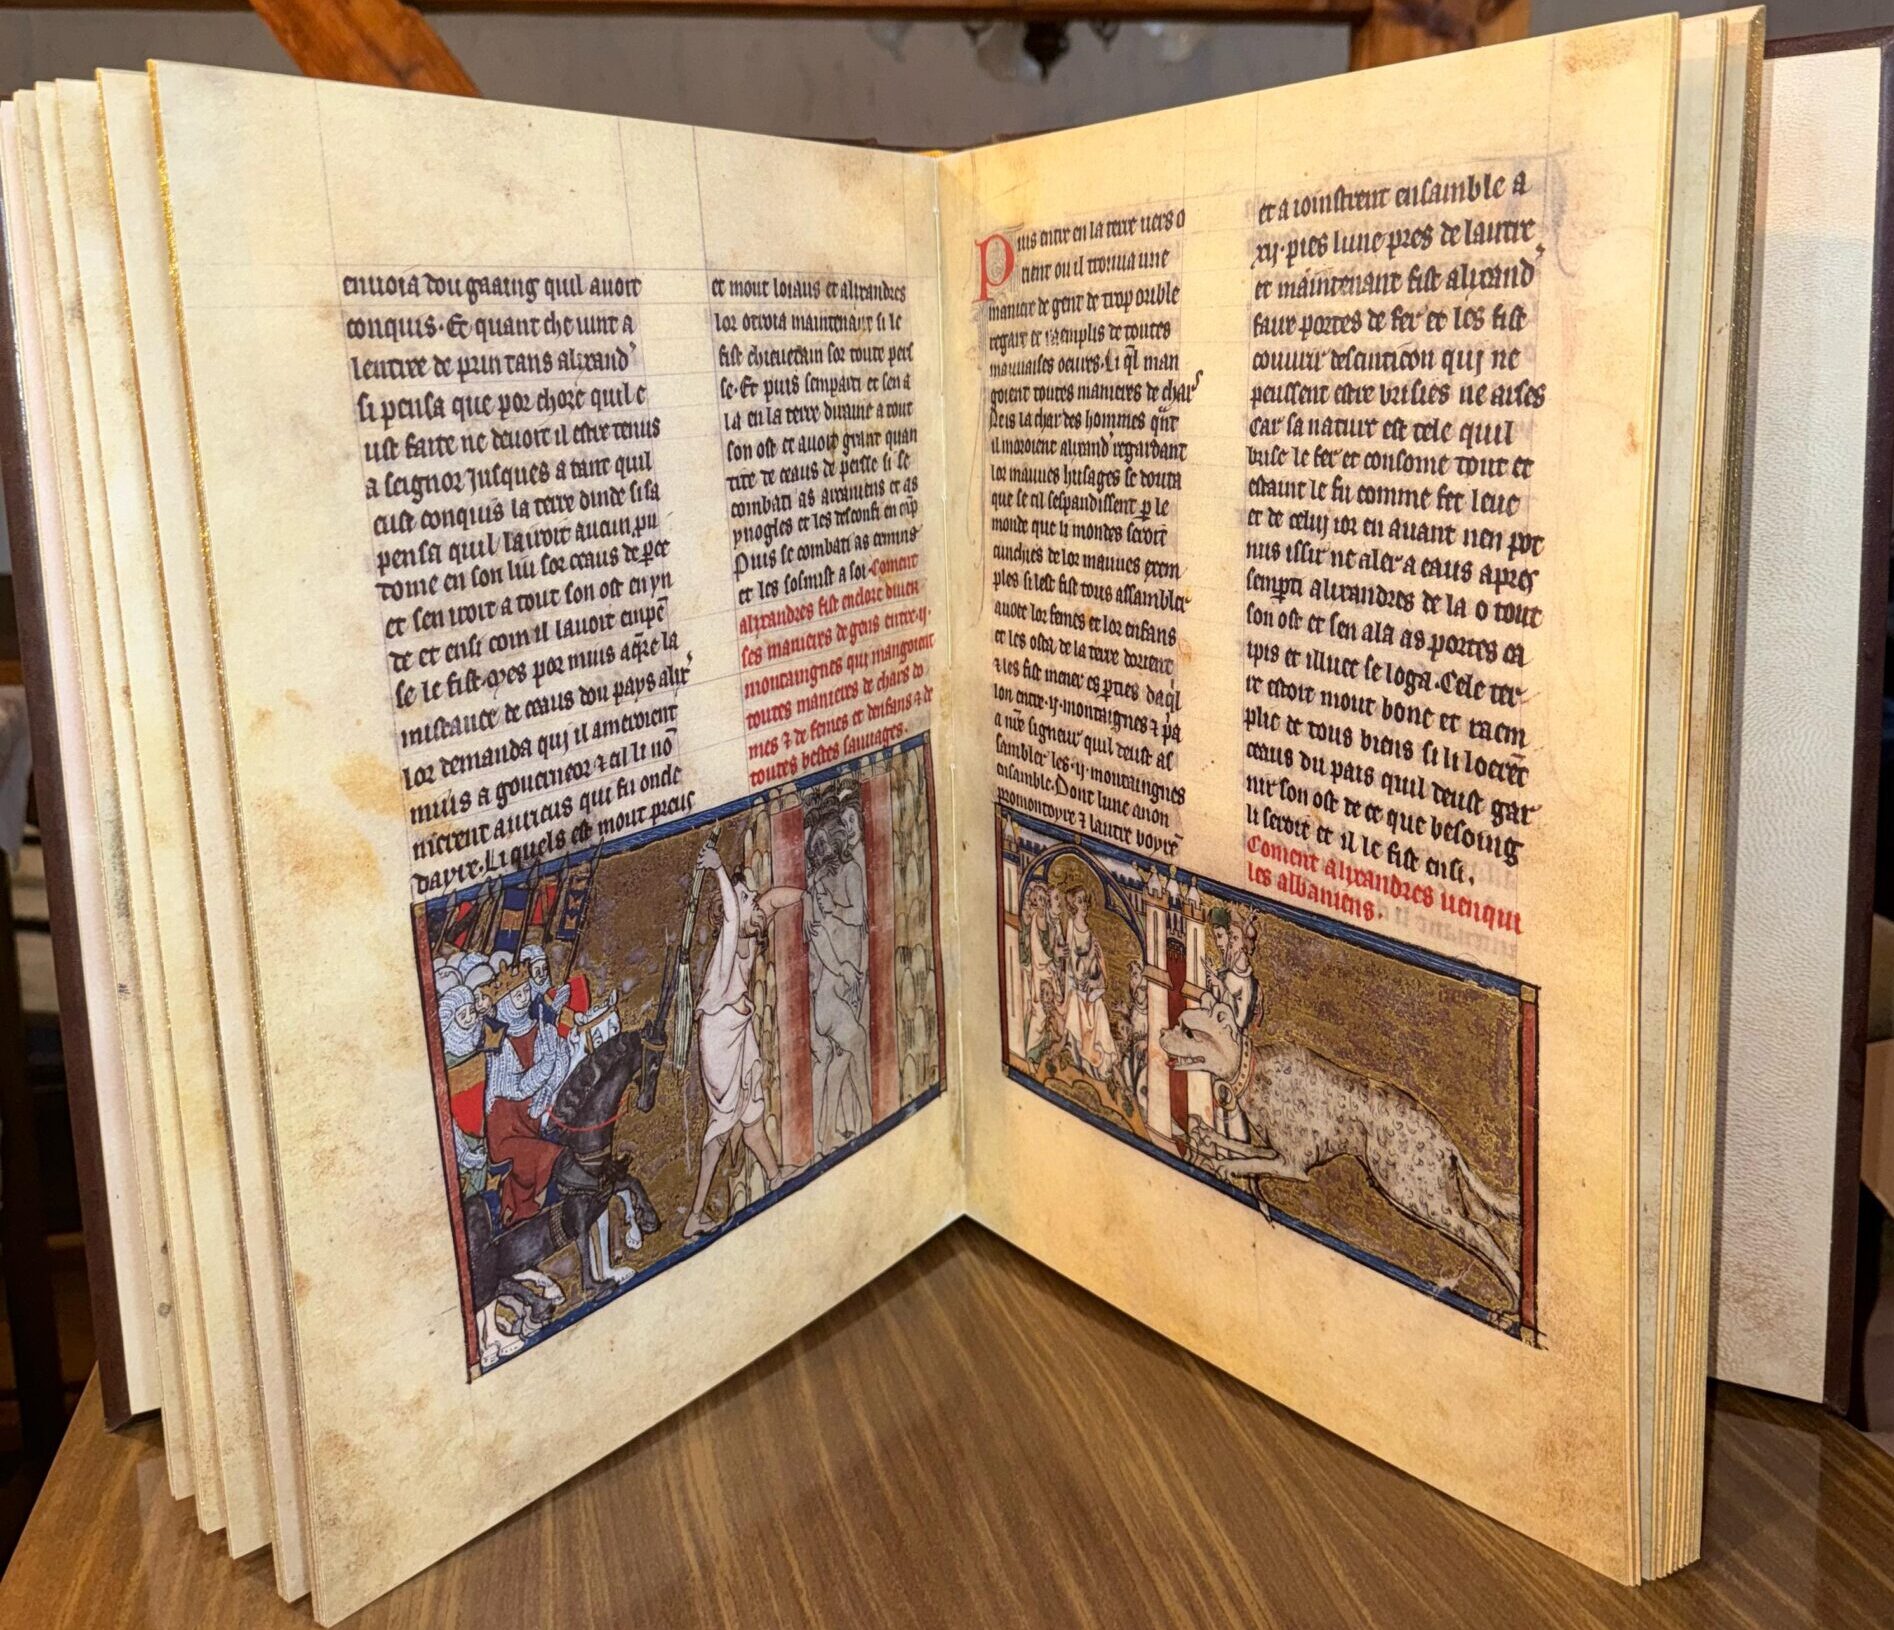 enuoia dou gaaing quil auoit
conquis. Et quant che uint a
lentree de prin tans alixand'
si pensa que por chose quil e
ust faite ne deuoit il estre tenus
a seignor Jusques a tant quil
eust conquis la terre dinde si sa
pensa quil lairoit aucun pru
dome en son liu sor ceaus de perce
et sen iroit a tout son ost en yn
de et ensi com il lauoit empē
se le fist. Mes por mius aq̄re la
mistance de ceaus dou pays alix'
lor demanda qui il ameroient
mius a gouerneor ⁊ cil li nō
merent auticus qui fu oncle
dayre. Li quels est mout preus
et mout loiaus et alixandres
lor otroia maintenant si le
fist chieuetain sor toute perf
se. Et puis semparti et sen a
la en la terre diraine a tout
son ost et auoit grant quan
tite de ceaus de perse si se
combati as
ynogles et les desconfi en
Puis se combati as comins
et les sosmist a soi. Coment
alixandres fist enclore diuer
ses manieres de gens entre .ij.
montaingnes qui mangoient
toutes manieres de chars do
mes ⁊ de femes et denfans ⁊ de
toutes bestes sauuages.
Puis entre en la terre uers o
rient ou il trouua une
maniere de gent de trop orible
regart et raemplis de toutes
mauuaises oeures. Li q̄l man
goient toutes manieres de char
Neis la char des hommes q̄nt
il moroient alixand' regardant
lor mauues husages se douta
que se cil sespandissent p̲ le
monde que li mondes seroit
cunchies de lor mauues exem
ples si lest fist tous assambler
auoec lor femes et lor enfans
et les osta de la terre dorient
⁊ les fist mener es p̲ties daq̄l
lon entre .ij. montaignes ⁊ p̲a
a nr̄e signeur quil deust as
sambler les .ij. montaingnes
ensamble. Dont lune a non
promontoyre ⁊ lautre boyrē
et a ioinstrent ensamble a
xij. pies lune pres de lautre
et maintenant fist alixand'
faire portes de fer et les fist
couurir de qui ne
peussent estre brisies ne arses
Car sa nature est tele quil
brise le fer et consome tout et
estaint le fu comme fet leue
et de celuj ior en auant nen pot
nus issir ne aler a eaus apres
semp̲ti alixandres de la o tout
son ost et sen ala as portes ca
ipis et illuec se loga. Cele ter
re estoit mout bone et raem
plie de tous biens si li loerēt
ceaus du pais quil deust gar
nir son ost de ce que besoing
li seroit et il le fist ensi.
Coment alixandres uenqui
les albaniens.